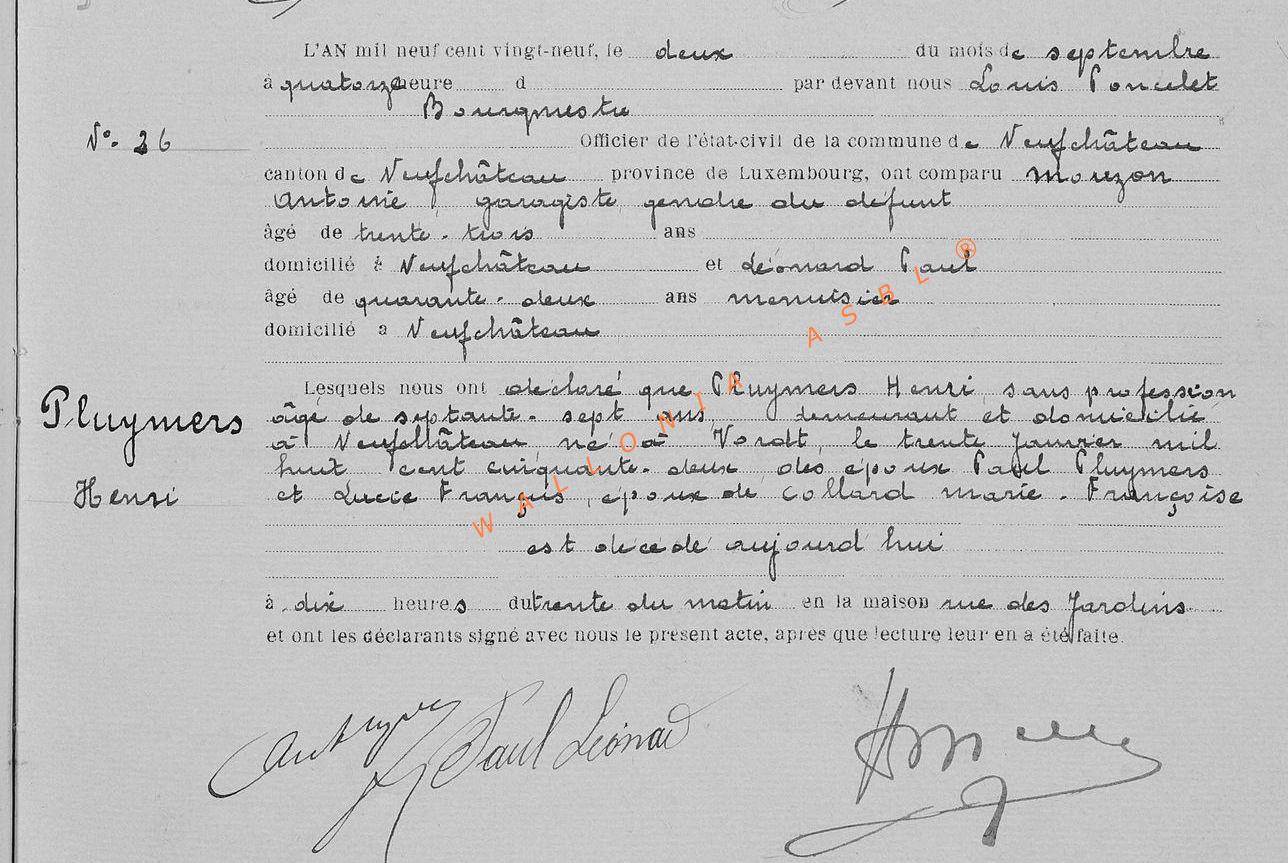 L'AN mil neuf cent vingt-neuf, le deux du mois de septembre
à quatorze heure d par devant nous Louis Poncelet
Bourgmestre
N°. 26 Officier de l'état-civil de la commune de Neufchâteau
canton de Neufchâteau province de Luxembourg, ont comparu Mouzon
Antoine, garagiste, gendre du défunt
âgé de trente-trois ans
domicilié à Neufchâteau et Léonard Paul
âgé de quarante-deux ans menuisier
domicilié à Neufchâteau
Lesquels nous ont déclaré que Pluymers Henri, sans profession
Pluymers âgé de septante-sept ans, demeurant et domicilié
à Neufchâteau né à Vordt, le trente Janvier mil
huit cent cinquante-deux, des époux Paul Pluymers
Henri et Lucie François, époux de Collard Marie-Françoise
est décédé aujourd'hui
à dix heures du trente du matin en la maison rue des Jardins
et ont les déclarants signé avec nous le présent acte, après que lecture leur en a été faite.
Paul Léonard
WALLONIA ASBL ®